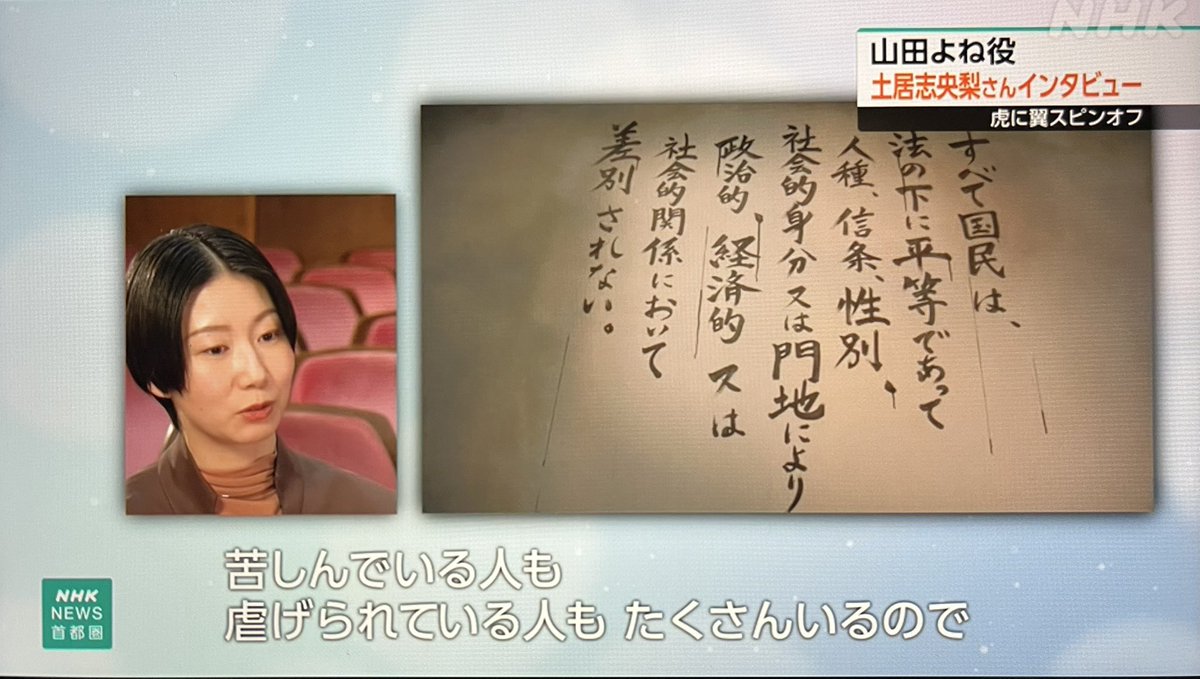 NHK
山田よね役
土居志央梨さんインタビュー
虎に翼スピンオフ
すべて国民は、
法の下に平等であって
人種、信条、性別、
社会的身分又は門地により
政治的、経済的又は
社会的関係において
差別されない。
苦しんでいる人も
虐げられている人も たくさんいるので
NHK
NEWS
首都圏